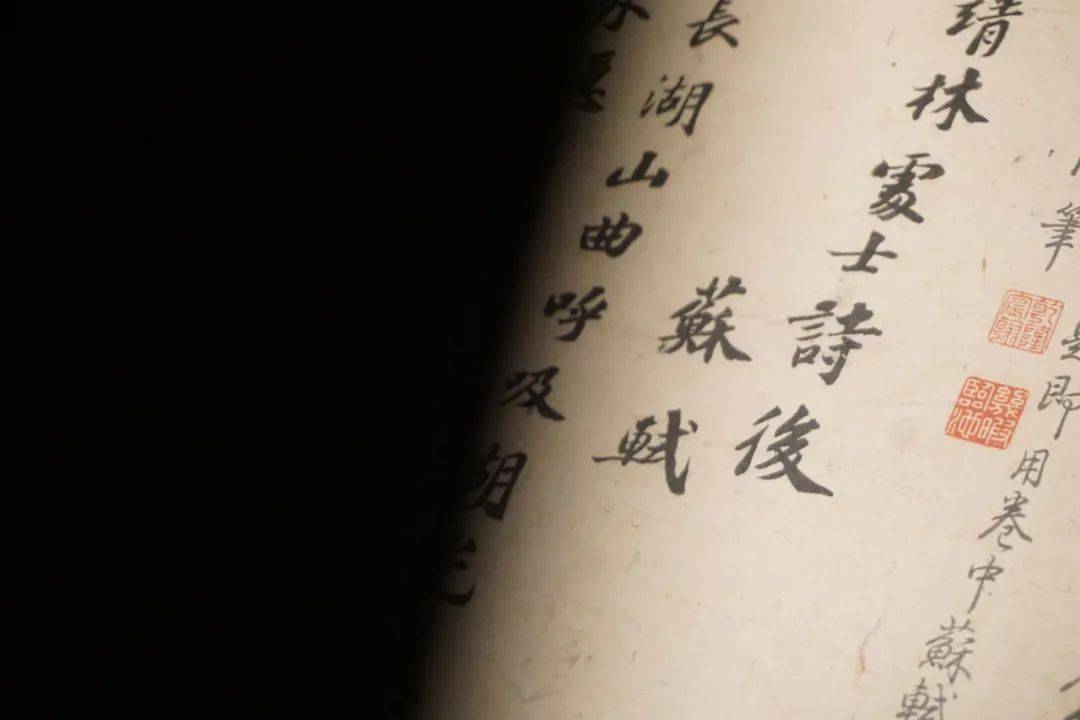 筆
即用卷中蘇軾
乾隆宸翰
幾暇臨池
靖林處士詩後
蘇軾
長湖山曲呼吸湖光